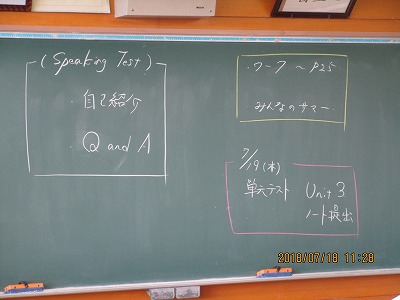 (Speaking Test)
・自己紹介
・Q and A
・ワーク 〜P25
・みんなのサマー
7/19(木)
単元テスト Unit 3
ノート提出
2018/07/18 11:28